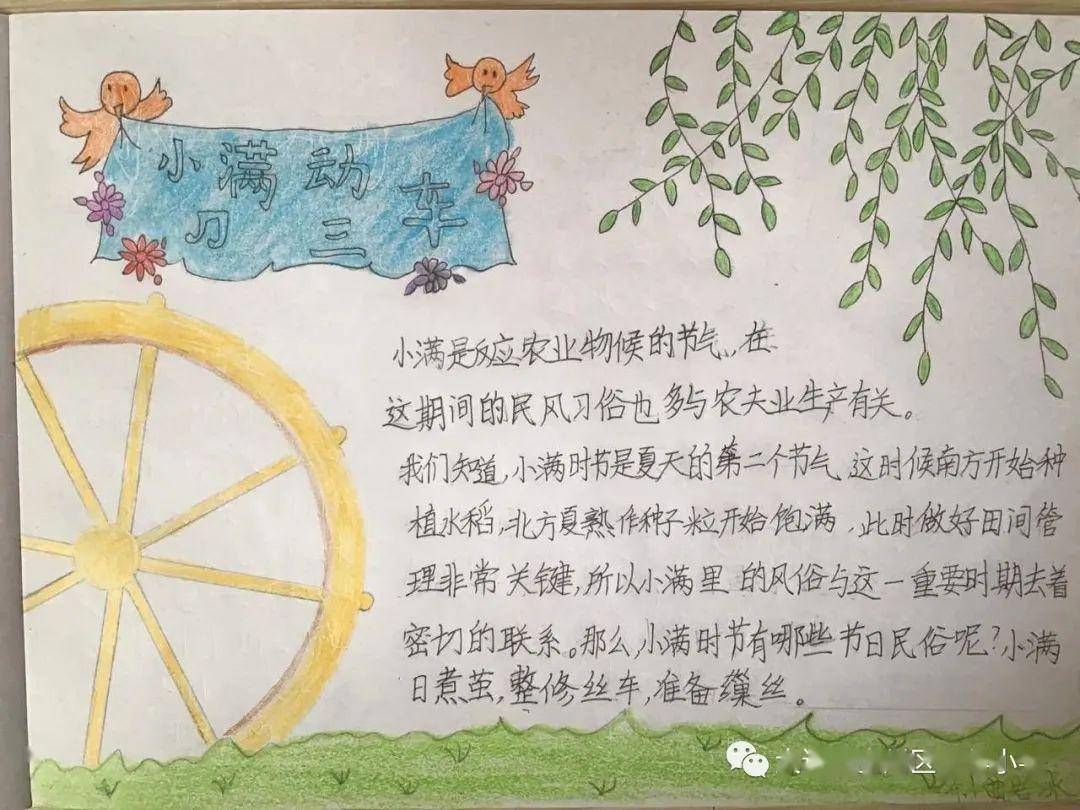 小满动车
刀三
小满是反应农业物候的节气,在
这期间的民风习俗也多与农夫业生产有关。
我们知道,小满时节是夏天的第二个节气,这时候南方开始种
植水稻,北方夏熟作种子粒开始饱满,此时做好田间管
理非常关键,所以小满里的风俗与这一重要时期去着
密切的联系。那么,小满时节有哪些节日民俗呢?小满
日煮茧,整修丝车,准备缫丝。
区 小